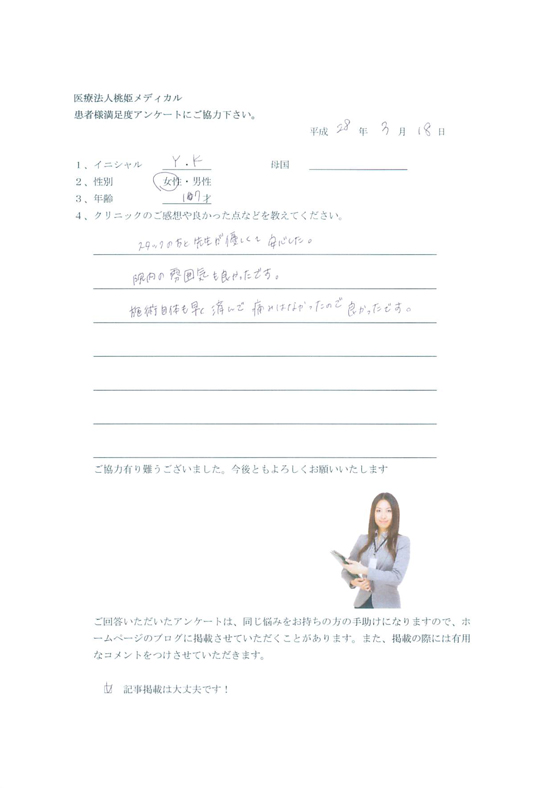 医療法人桃姫メディカル
患者様満足度アンケートにご協力下さい。
平成 28 年 3 月 18 日
1、イニシャル Y・K 母国
2、性別 女性・男性
3、年齢 才
4、クリニックのご感想や良かった点などを教えてください。
スタッフの方と先生が優しくて安心した。
院内の雰囲気も良かったです。
施術自体も早く済んで痛みはなかったので良かったです。
ご協力有り難うございました。今後ともよろしくお願いいたします
ご回答いただいたアンケートは、同じ悩みをお持ちの方の手助けになりますので、ホ
ームページのブログに掲載させていただくことがあります。また、掲載の際には有用
なコメントをつけさせていただきます。
記事掲載は大丈夫です！